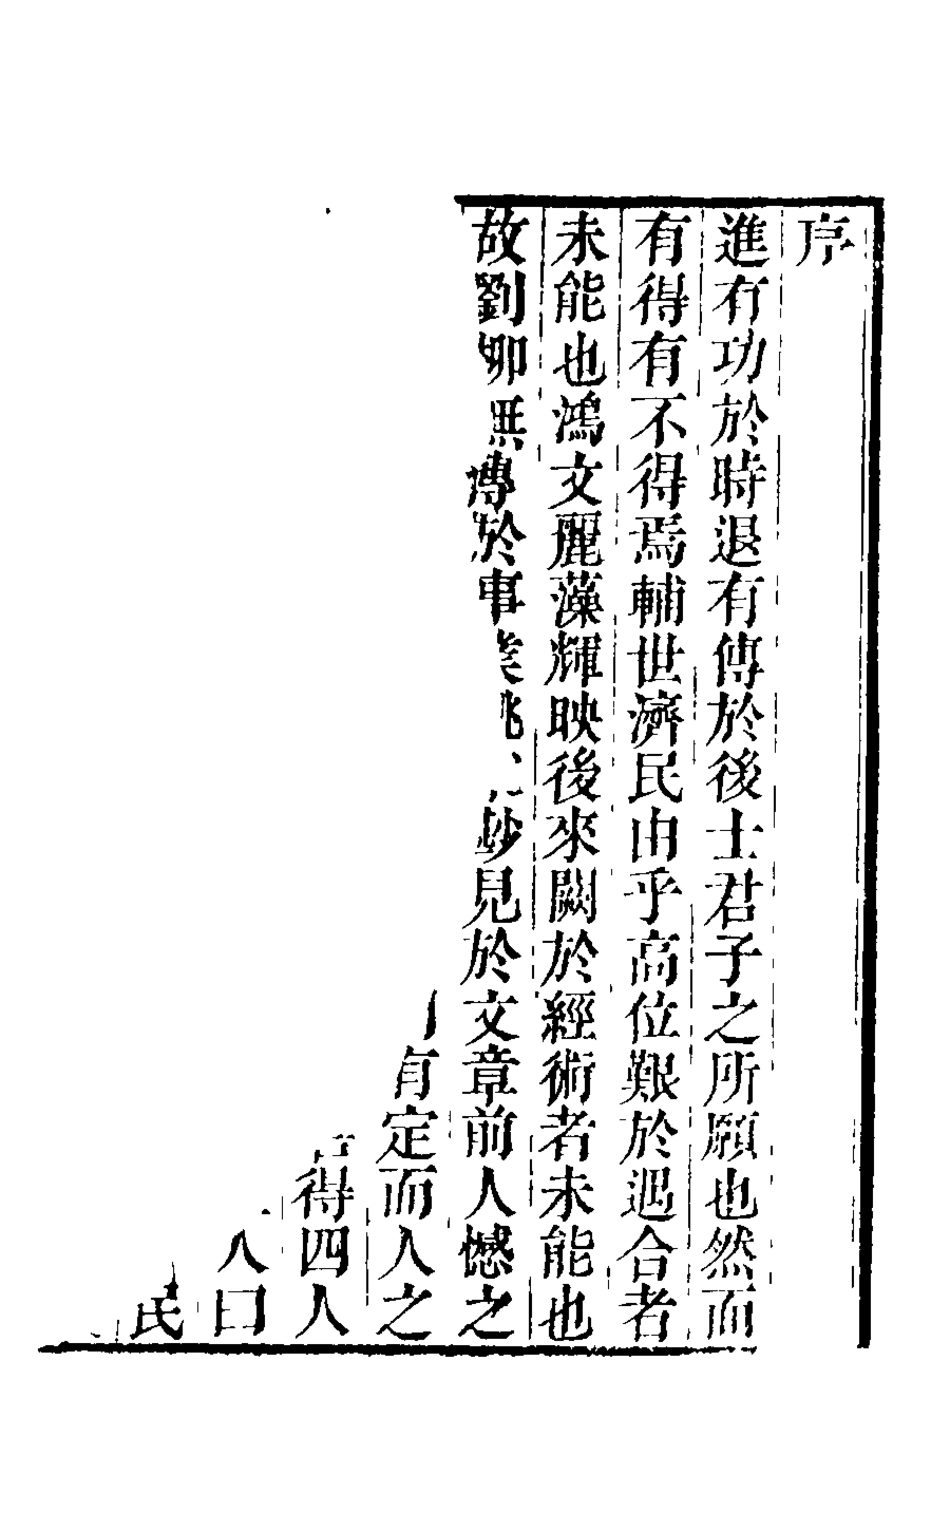 序
進有功於時退有傳於後士君子之所願也然而
有得有不得焉輔世濟民由乎高位艱於遇合者
未能也鴻文麗藻輝映後來闕於經術者未能也
故劉柳無傳於事業姚見於文章前人憾之
有定而人之
得四人
人曰
民